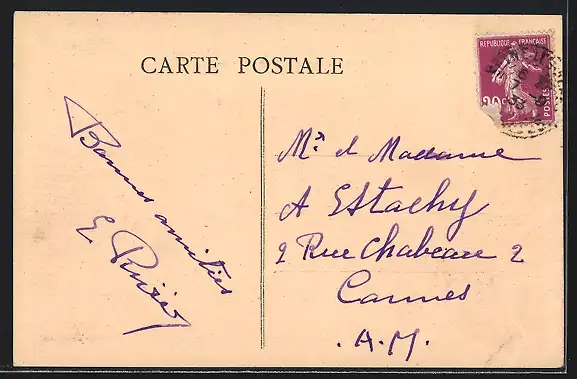 CARTE POSTALE
REPUBLIQUE FRANÇAISE
20c
POSTES
Bonnes amitiés
E
Mr. et Madame
A Estachy
2 Rue Chabeau 2
Cannes
. A. M.